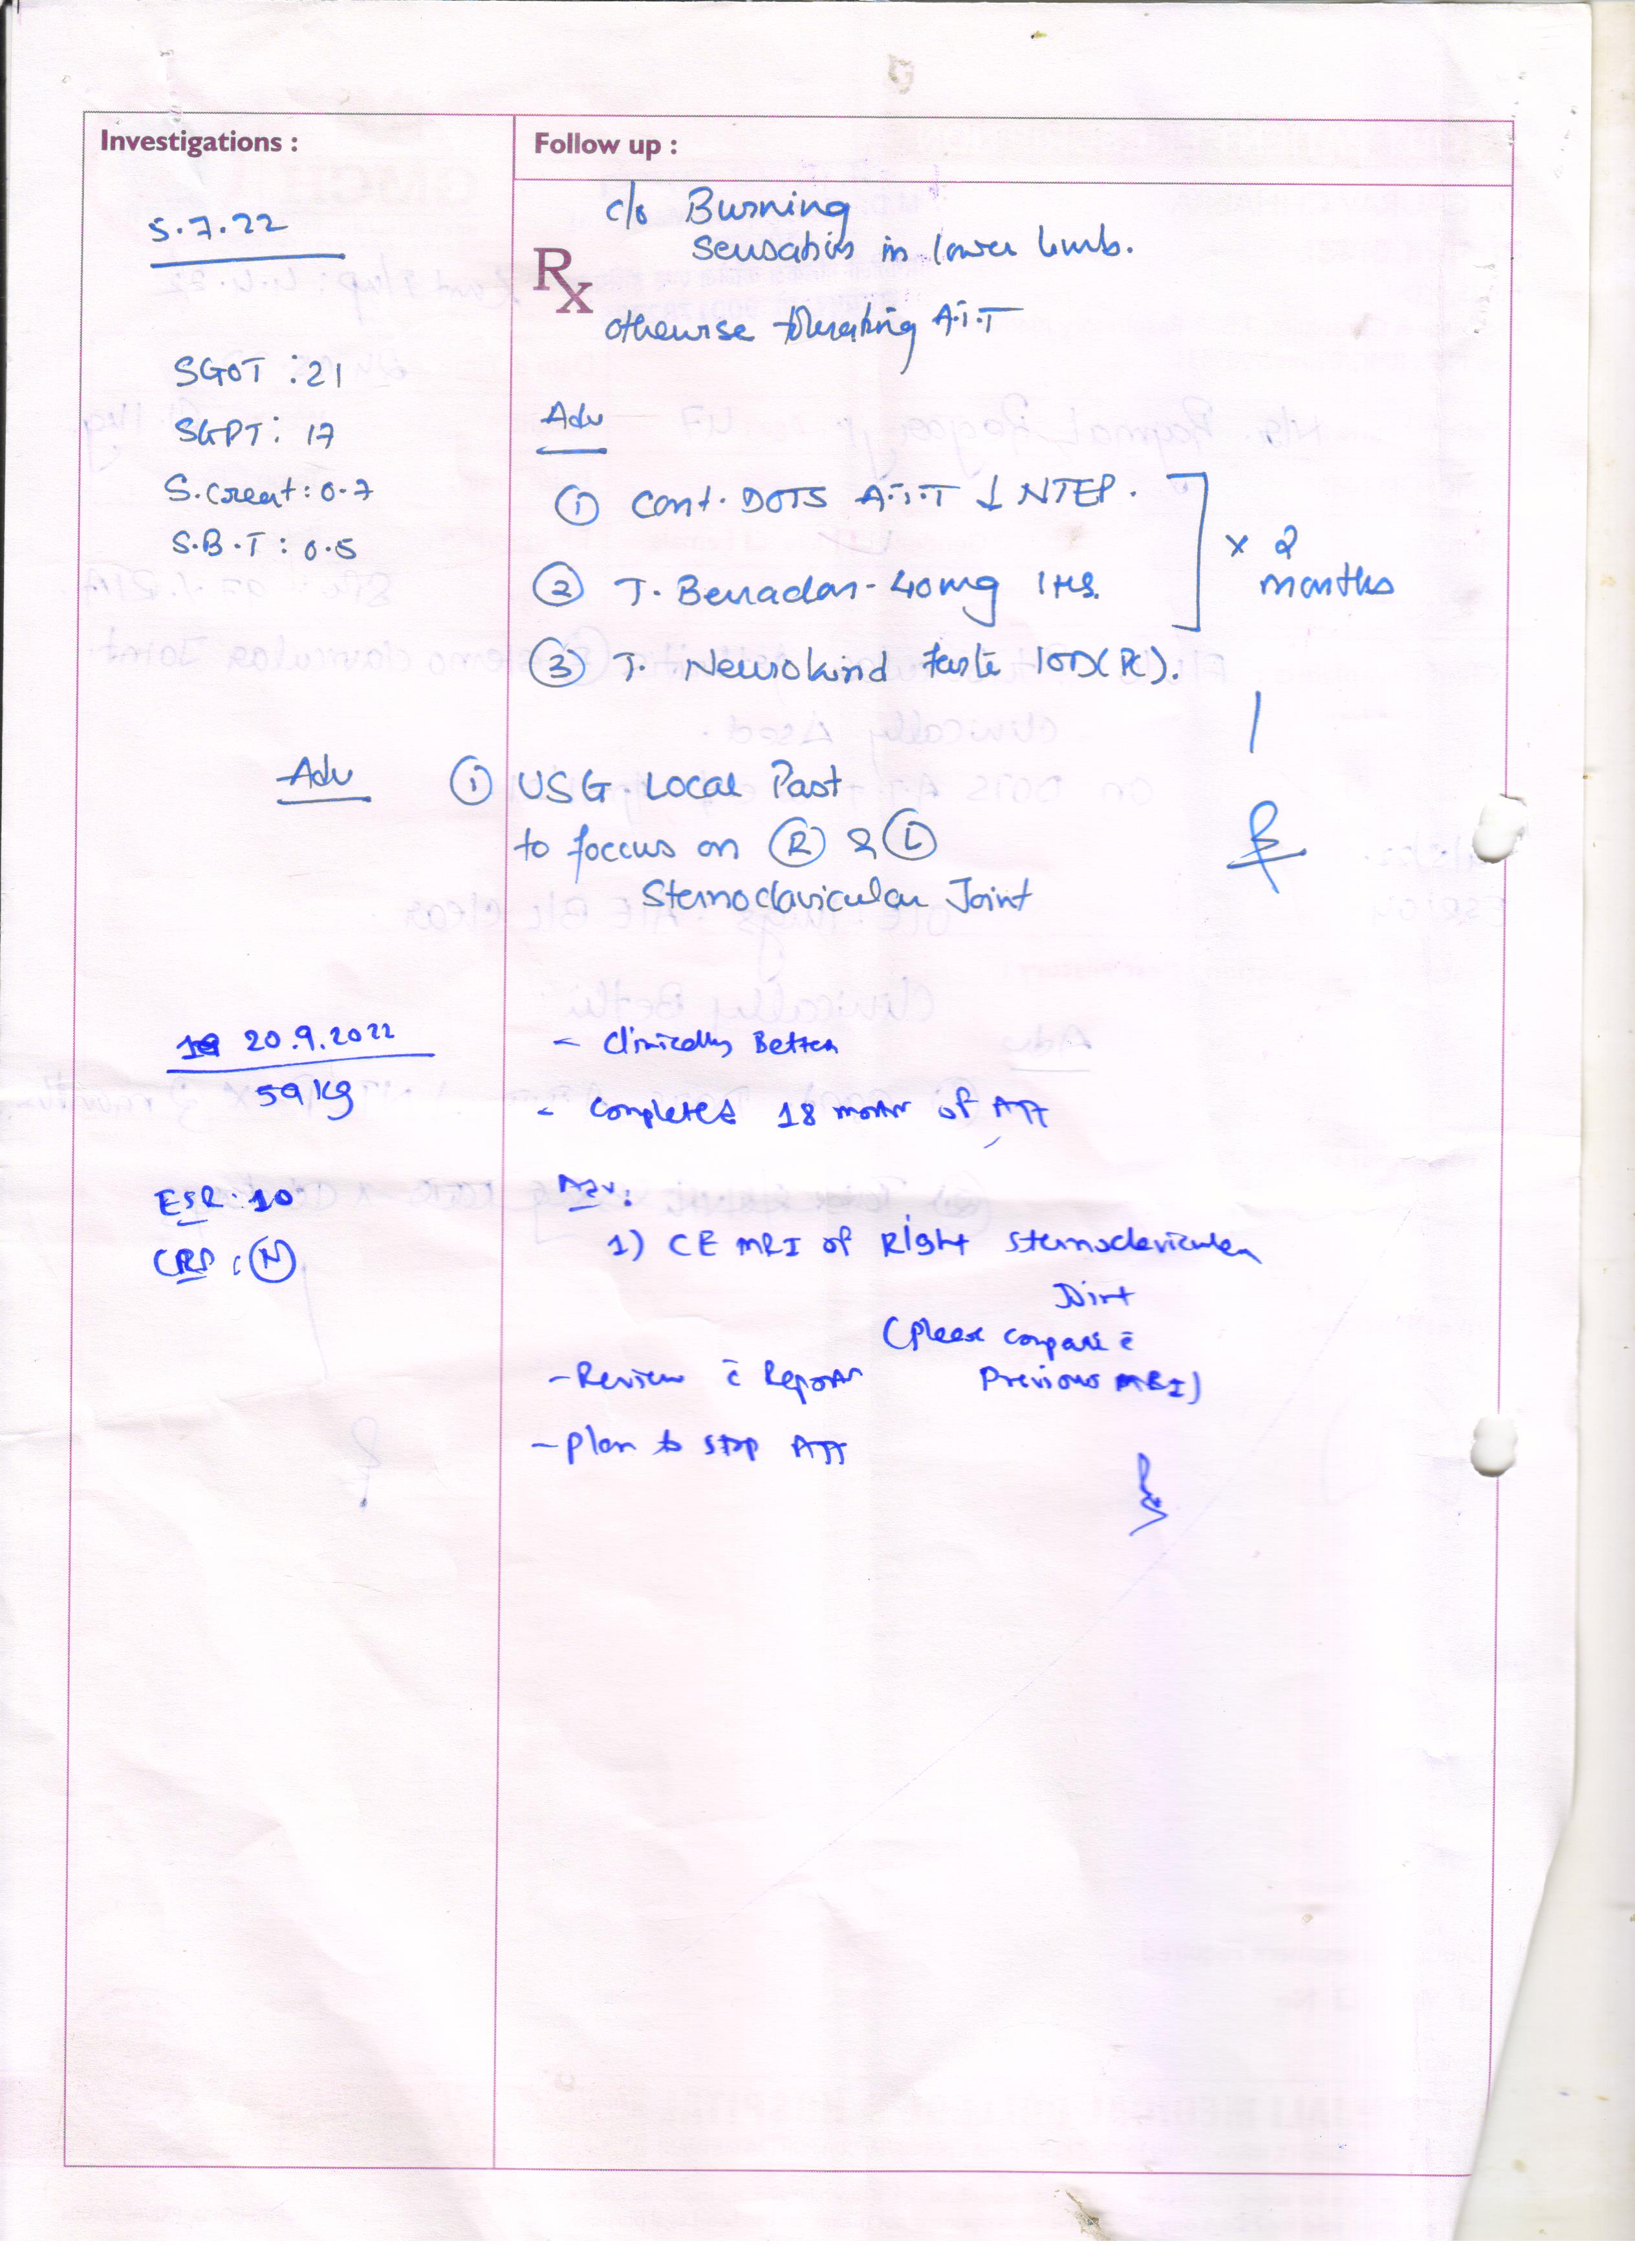 Investigations :
Follow up :
5.7.22
c/o Burning
sensation in lower limb.
Rx
otherwise tolerating A.T.T
SGOT : 21
SGPT : 17
S.Creat : 0.7
S.B.T : 0.5
Adv
① Cont. DOTS A.T.T ↓ NTEP.
② T. Benadon - 40mg 1 HS.
x 2
months
③ T. Neurokind forte 1 OD (PC).
Adv ① USG. Local Part
to foccus on Ⓡ & Ⓛ
Sternoclavicular Joint
20.9.2022
59 kg
- Clinically Better
- Completed 18 month of ATT
ESR : 10
CRP : Ⓝ
Adv :
1) CE MRI of Right sternoclavicular
Joint
(Please compare c̄
Previous MRI)
- Review c̄ Reports
- plan to stop ATT